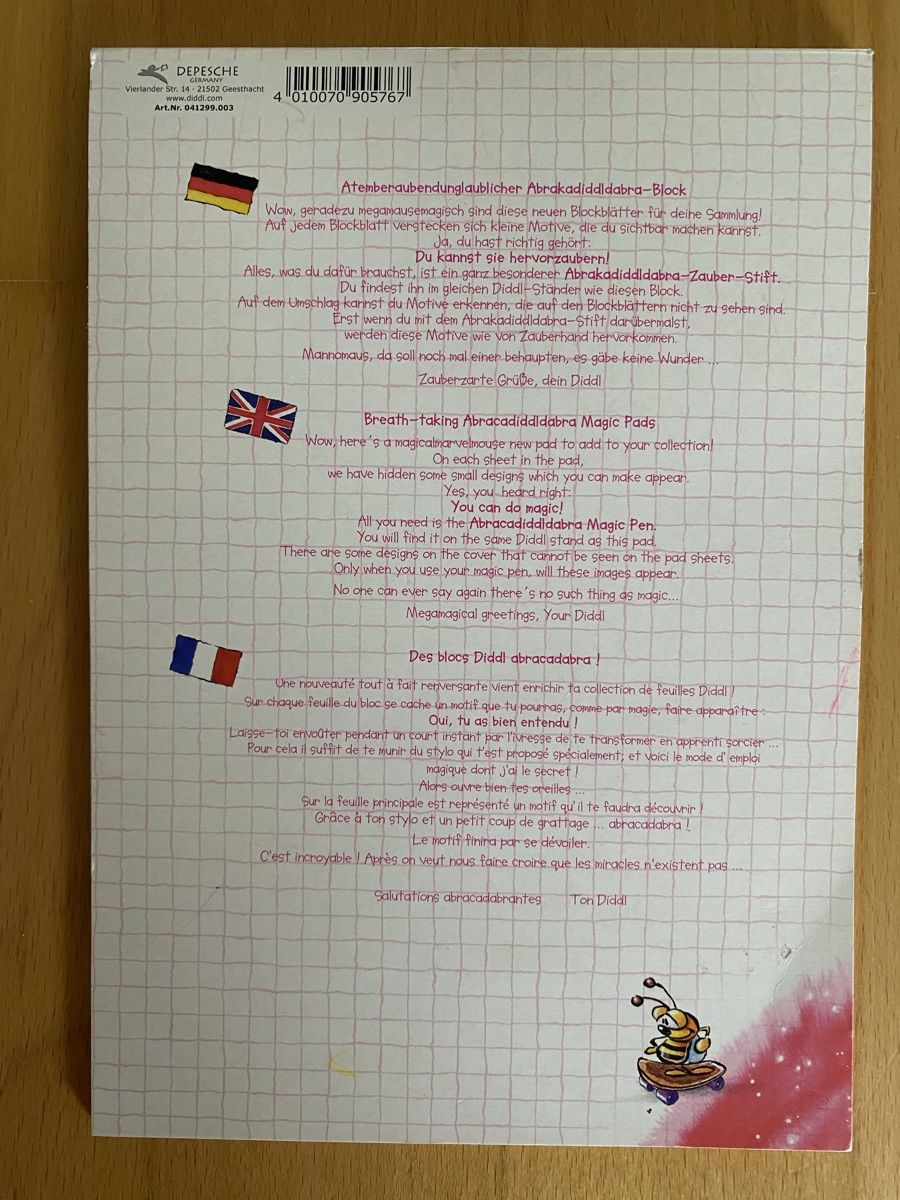 DEPESCHE
GERMANY
Vierlander Str. 14 · 21502 Geesthacht
www.diddl.com
Art.Nr. 041299.003
4 010070 905767
Atemberaubendunglaublicher Abrakadiddldabra-Block
Wow, geradezu megamausemagisch sind diese neuen Blockblätter für deine Sammlung!
Auf jedem Blockblatt verstecken sich kleine Motive, die du sichtbar machen kannst.
Ja, du hast richtig gehört:
Du kannst sie hervorzaubern!
Alles, was du dafür brauchst, ist ein ganz besonderer Abrakadiddldabra-Zauber-Stift.
Du findest ihn im gleichen Diddl-Ständer wie diesen Block.
Auf dem Umschlag kannst du Motive erkennen, die auf den Blockblättern nicht zu sehen sind.
Erst wenn du mit dem Abrakadiddldabra-Stift darübermalst,
werden diese Motive wie von Zauberhand hervorkommen.
Mannomaus, da soll noch mal einer behaupten, es gäbe keine Wunder ...
Zauberzarte Grüße, dein Diddl
Breath-taking Abracadiddldabra Magic Pads
Wow, here's a magicalmarvelmouse new pad to add to your collection!
On each sheet in the pad,
we have hidden some small designs which you can make appear.
Yes, you heard right:
You can do magic!
All you need is the Abracadiddldabra Magic Pen.
You will find it on the same Diddl stand as this pad.
There are some designs on the cover that cannot be seen on the pad sheets.
Only when you use your magic pen, will these images appear.
No one can ever say again there's no such thing as magic...
Megamagical greetings, Your Diddl
Des blocs Diddl abracadabra !
Une nouveauté tout à fait renversante vient enrichir ta collection de feuilles Diddl !
Sur chaque feuille du bloc se cache un motif que tu pourras, comme par magie, faire apparaître :
Oui, tu as bien entendu !
Laisse-toi envoûter pendant un court instant par l'ivresse de te transformer en apprenti sorcier ...
Pour cela il suffit de te munir du stylo qui t'est proposé spécialement, et voici le mode d' emploi
magique dont j'ai le secret !
Alors ouvre bien tes oreilles ...
Sur la feuille principale est représenté un motif qu'il te faudra découvrir !
Grâce à ton stylo et un petit coup de grattage ... abracadabra !
Le motif finira par se dévoiler.
C'est incroyable ! Après on veut nous faire croire que les miracles n'existent pas ...
Salutations abracadabrantes Ton Diddl